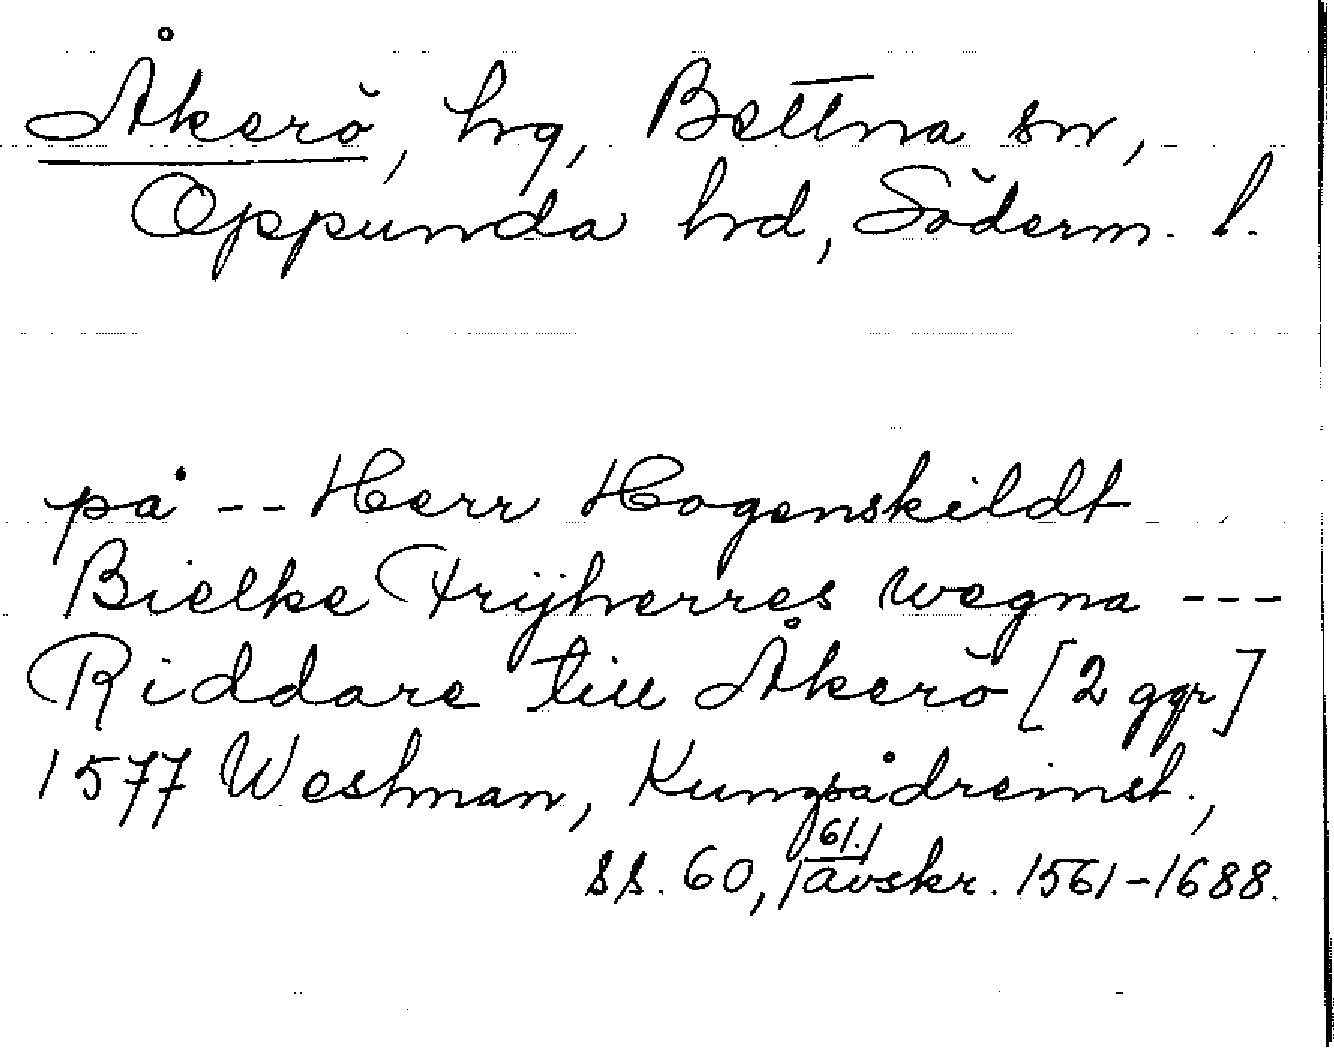 Åkerö, hg, Bettna sn,
Oppunda hd, Söderm. l.
på -- Herr Hogenskildt
Bielke Frijherres wegna ---
Riddare till Åkerö [2 ggr]
1577 Westman, Kungsådreinst.,
ss. 60, 61. avskr. 1561-1688.